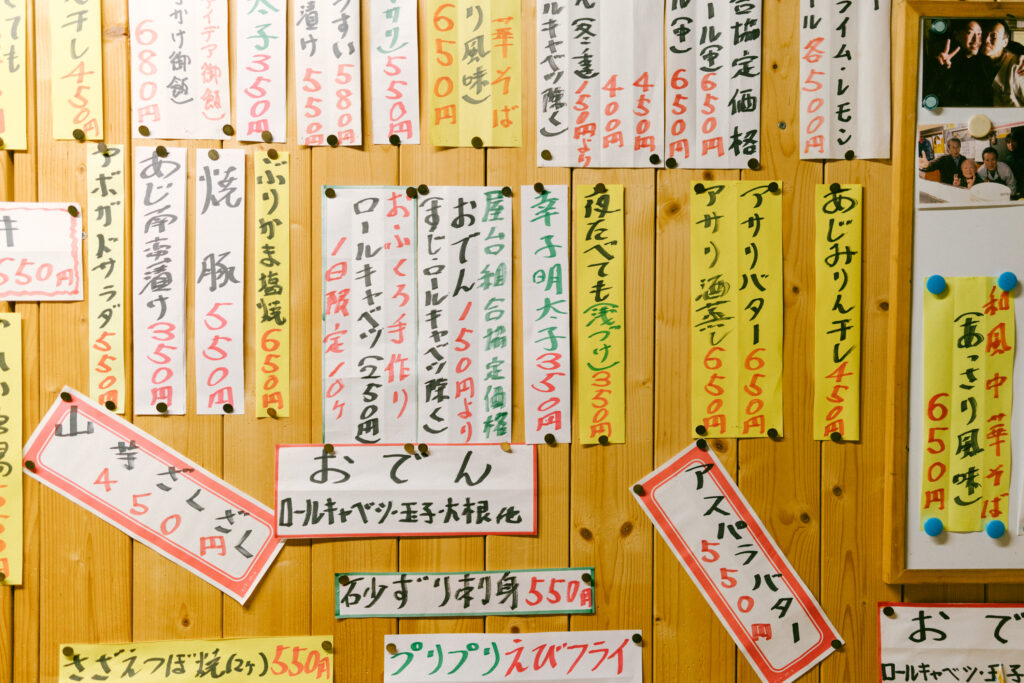 ても
干し450
かけ御飯
アイデア御飯
680円
太子350円
うすい580円
漬け 550円
アサリ)550円
華そば
り風味)
650円
合協定価格
ール(金)650円
ル(中)650円
450円
400円
ん(冬の産)150円より
ルキャベツ除く)
ライム・レモン
ール各500円
丼
550円
アボガドサラダ550円
あじ南蛮漬け350円
焼豚550円
ぶりかま塩焼650円
屋台組合協定価格
おでん150円より
(すじ・ロールキャベツ除く)
おふくろ手作り
ロールキャベツ(250円)
1日限定10ケ
辛子明太子350円
夜たべても(浅づけ)350円
アサリバター650円
アサリ酒蒸し650円
あじみりん干し450円
和風中華そば
(あっさり風味)
650円
山芋ざくざく
450円
おでん
ロールキャベツ・玉子・大根他
アスパラバター
550円
砂ずり刺身550円
さざえつぼ焼(2ヶ)550円
プリプリえびフライ
おで
ロールキャベツ・玉子